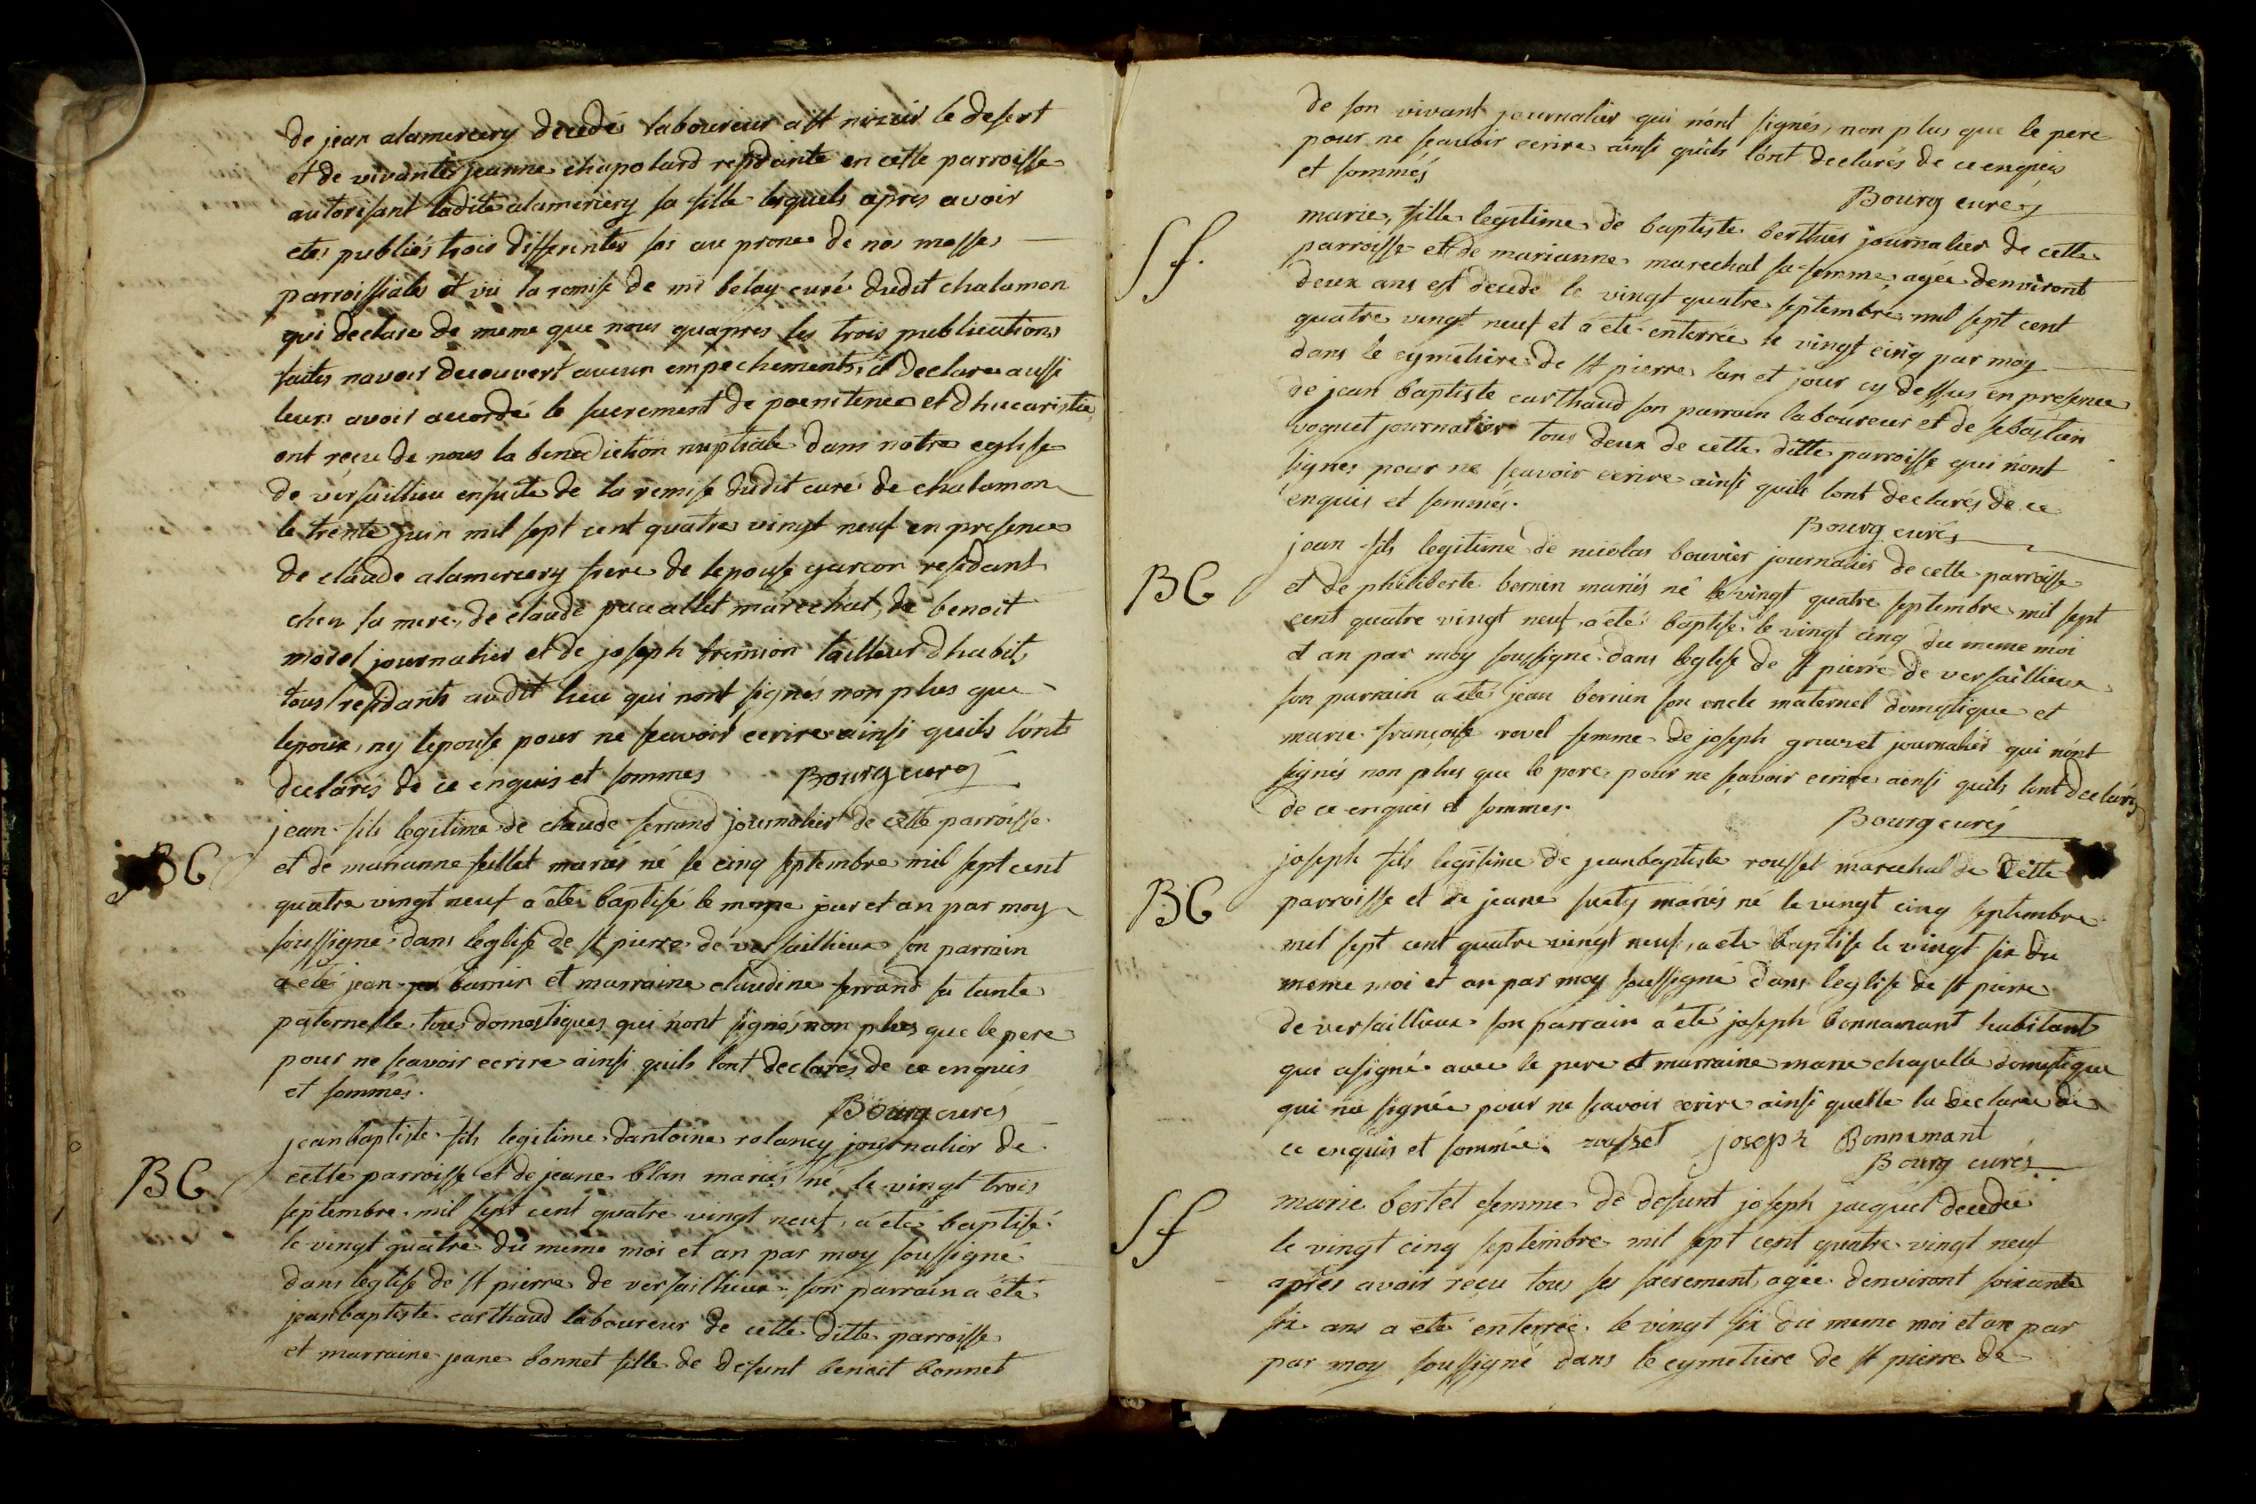 de jean alamercery decedé laboureur a st nizier le desert
et de vivante jeanne chapolard residante en cette parroisse
autorisant ladite alamercery sa fille lesquels apres avoir
etes publiés trois differentes fois au prone de nos messes
parroissiales et vu la remise de mr belay curé dudit chalamon
qui declare de meme que nous quapres les trois publications
faites navoir decouvert aucun empechements, il declare aussi
leurs avoir accordé le sacrement de poenitence et dhucaristie
ont reçu de nous la benediction nuptiale dans notre eglise
de versaillieu ensuite de la remise dudit curé de chalamon
le trente juin mil sept cent quatre vingt neuf en presence
de claude alamercery frere de lepouse garcon residant
chez sa mere, de claude pauallet marechal, de benoit
morel journalier et de joseph tremion tailleur dhabit,
tous residants audit lieu qui nont signés non plus que
lepoux, ny lepouse pour ne scavoir ecrire ainsi quils lont
declarés de ce enquis et sommes Bourg curé
jean fils legitime de claude ferrand journalier de cette parroisse
BC et de marianne feillet mariés né le cinq septembre mil sept cent
quatre vingt neuf a été baptisé le meme jour et an par moy
soussigné dans leglise de st pierre de versaillieux son parrain
a été jean bernin et marraine claudine ferrand sa tante
paternelle, tous domestiques qui nont signés non plus que le pere
pour ne scavoir ecrire ainsi quils lont declarés de ce enquis
et sommés.
Bourg curés
jeanbaptiste fils legitime dantoine rolancy journalier de
BC cette parroisse et de jeane blan mariés né le vingt trois
septembre mil sept cent quatre vingt neuf, a été baptisé
le vingt quatre du meme moi et an par moy soussigné
dans leglise de st pierre de versaillieux son parrain a été
jeanbaptiste carthaud laboureur de cette ditte parroisse
et marraine jeane bonnet fille de defunt benoit bonnet
de son vivant journalier qui nont signés, non plus que le pere
pour ne scavoir ecrire ainsi quils lont declarés de ce enquis
et sommés
Bourg curé
Sf. marie, fille legitime de baptiste berthier journalier de cette
parroisse et de marianne marechal sa femme, agée denviront
deux ans est decedé le vingt quatre septembre mil sept cent
quatre vingt neuf et a été enterrée le vingt cinq par moy
dans le cymetiere de st pierre lan et jour cy dessus en presence
de jean baptiste carthaud son parrain laboureur et de sebastien
voguet journalier tous deux de cette ditte parroisse qui nont
signes pour ne scavoir ecrire ainsi quils lont declarés de ce
enquis et sommés.
Bourg curés
jean fils legitime de nicolas bouvier journalier de cette parroisse
BC et de philiberte bernin mariés né le vingt quatre septembre mil sept
cent quatre vingt neuf, a été baptisé le vingt cinq du meme moi
et an par moy soussigné dans leglise de st pierre de versaillieux
son parrain a été jean bernin son oncle maternel domestique et
marie françoise rovel femme de joseph journalier qui nont
signés non plus que le pere pour ne scavoir ecrire ainsi quils lont declarés
de ce enquis et sommes.
Bourg curés
joseph fils legitime de jeanbaptiste rousset marechal de cette
BC parroisse et de jeane mariés né le vingt cinq septembre
mil sept cent quatre vingt neuf, a été baptisé le vingt six du
meme moi et an par moy soussigné dans leglise de st pierre
de versaillieux son parrain a été joseph bonnamant habitant
qui a signé avec le pere et marraine marie chapelle domestique
qui na signée pour ne scavoir ecrire ainsi quelle la declaré de
ce enquis et sommée. rousset joseph Bonnamant
Bourg curés
Sf marie bertet femme de defunt joseph jacquet decedée
le vingt cinq septembre mil sept cent quatre vingt neuf
après avoir reçu tous ses sacrement, agée denviront soixante
six ans a été enterrée le vingt six du meme moi et an par
par moy soussigné dans le cymetiere de st pierre de